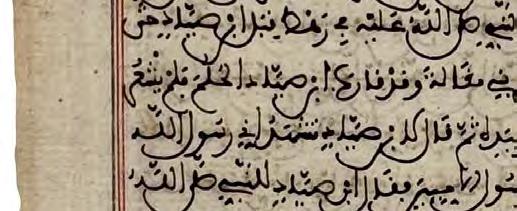 النبي صلى الله عليه في رهط قبل ابن صياد حتى
بني مغالة وقد قارب ابن صياد الحلم فلم يشعر
بيده ثم قال لابن صياد تشهد اني رسول الله
رسول الاميين فقال ابن صياد للنبي صلى الله